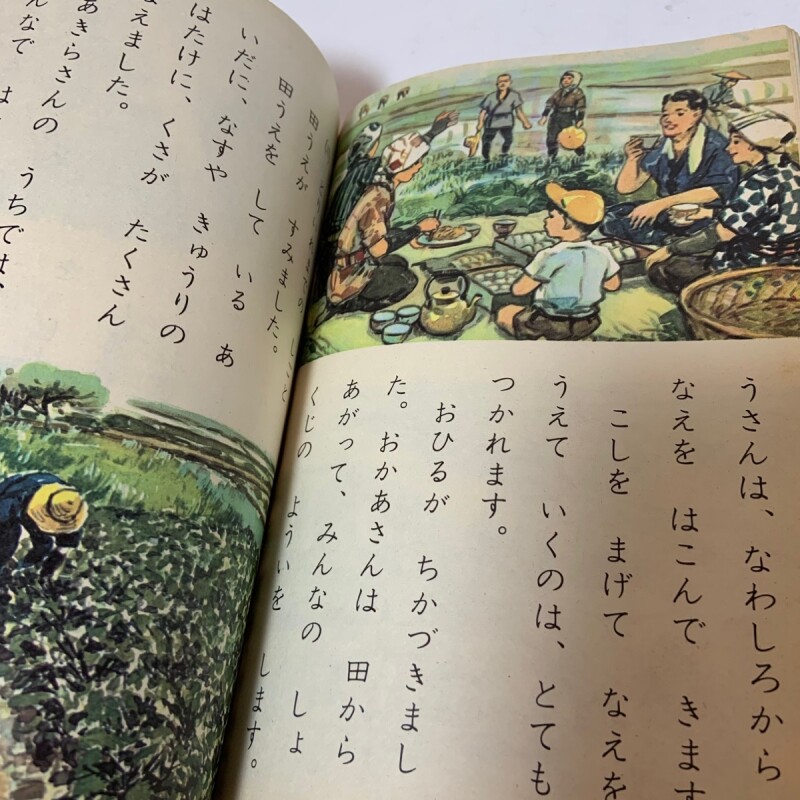 うさんは、なわしろから
なえを はこんで きます
こしを まげて なえを
うえて いくのは、とても
つかれます。
おひるが ちかづきまし
た。おかあさんは 田から
あがって、みんなの しょ
くじの よういを します。
田うえが すみました。
田うえを して いる あ
いだに、なすや きゅうりの
はたけに、くさが たくさん
えました。
あきらさんの うちでは、
んなで は